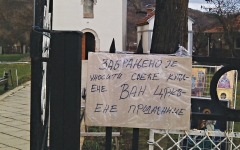 ЗАБРАЊЕНО ЈЕ
УНОСИТИ СВЕЋЕ КУПЉ-
ЕНЕ ВАН ЦРКВ-
ЕНЕ ПРОДАВНИЦЕ